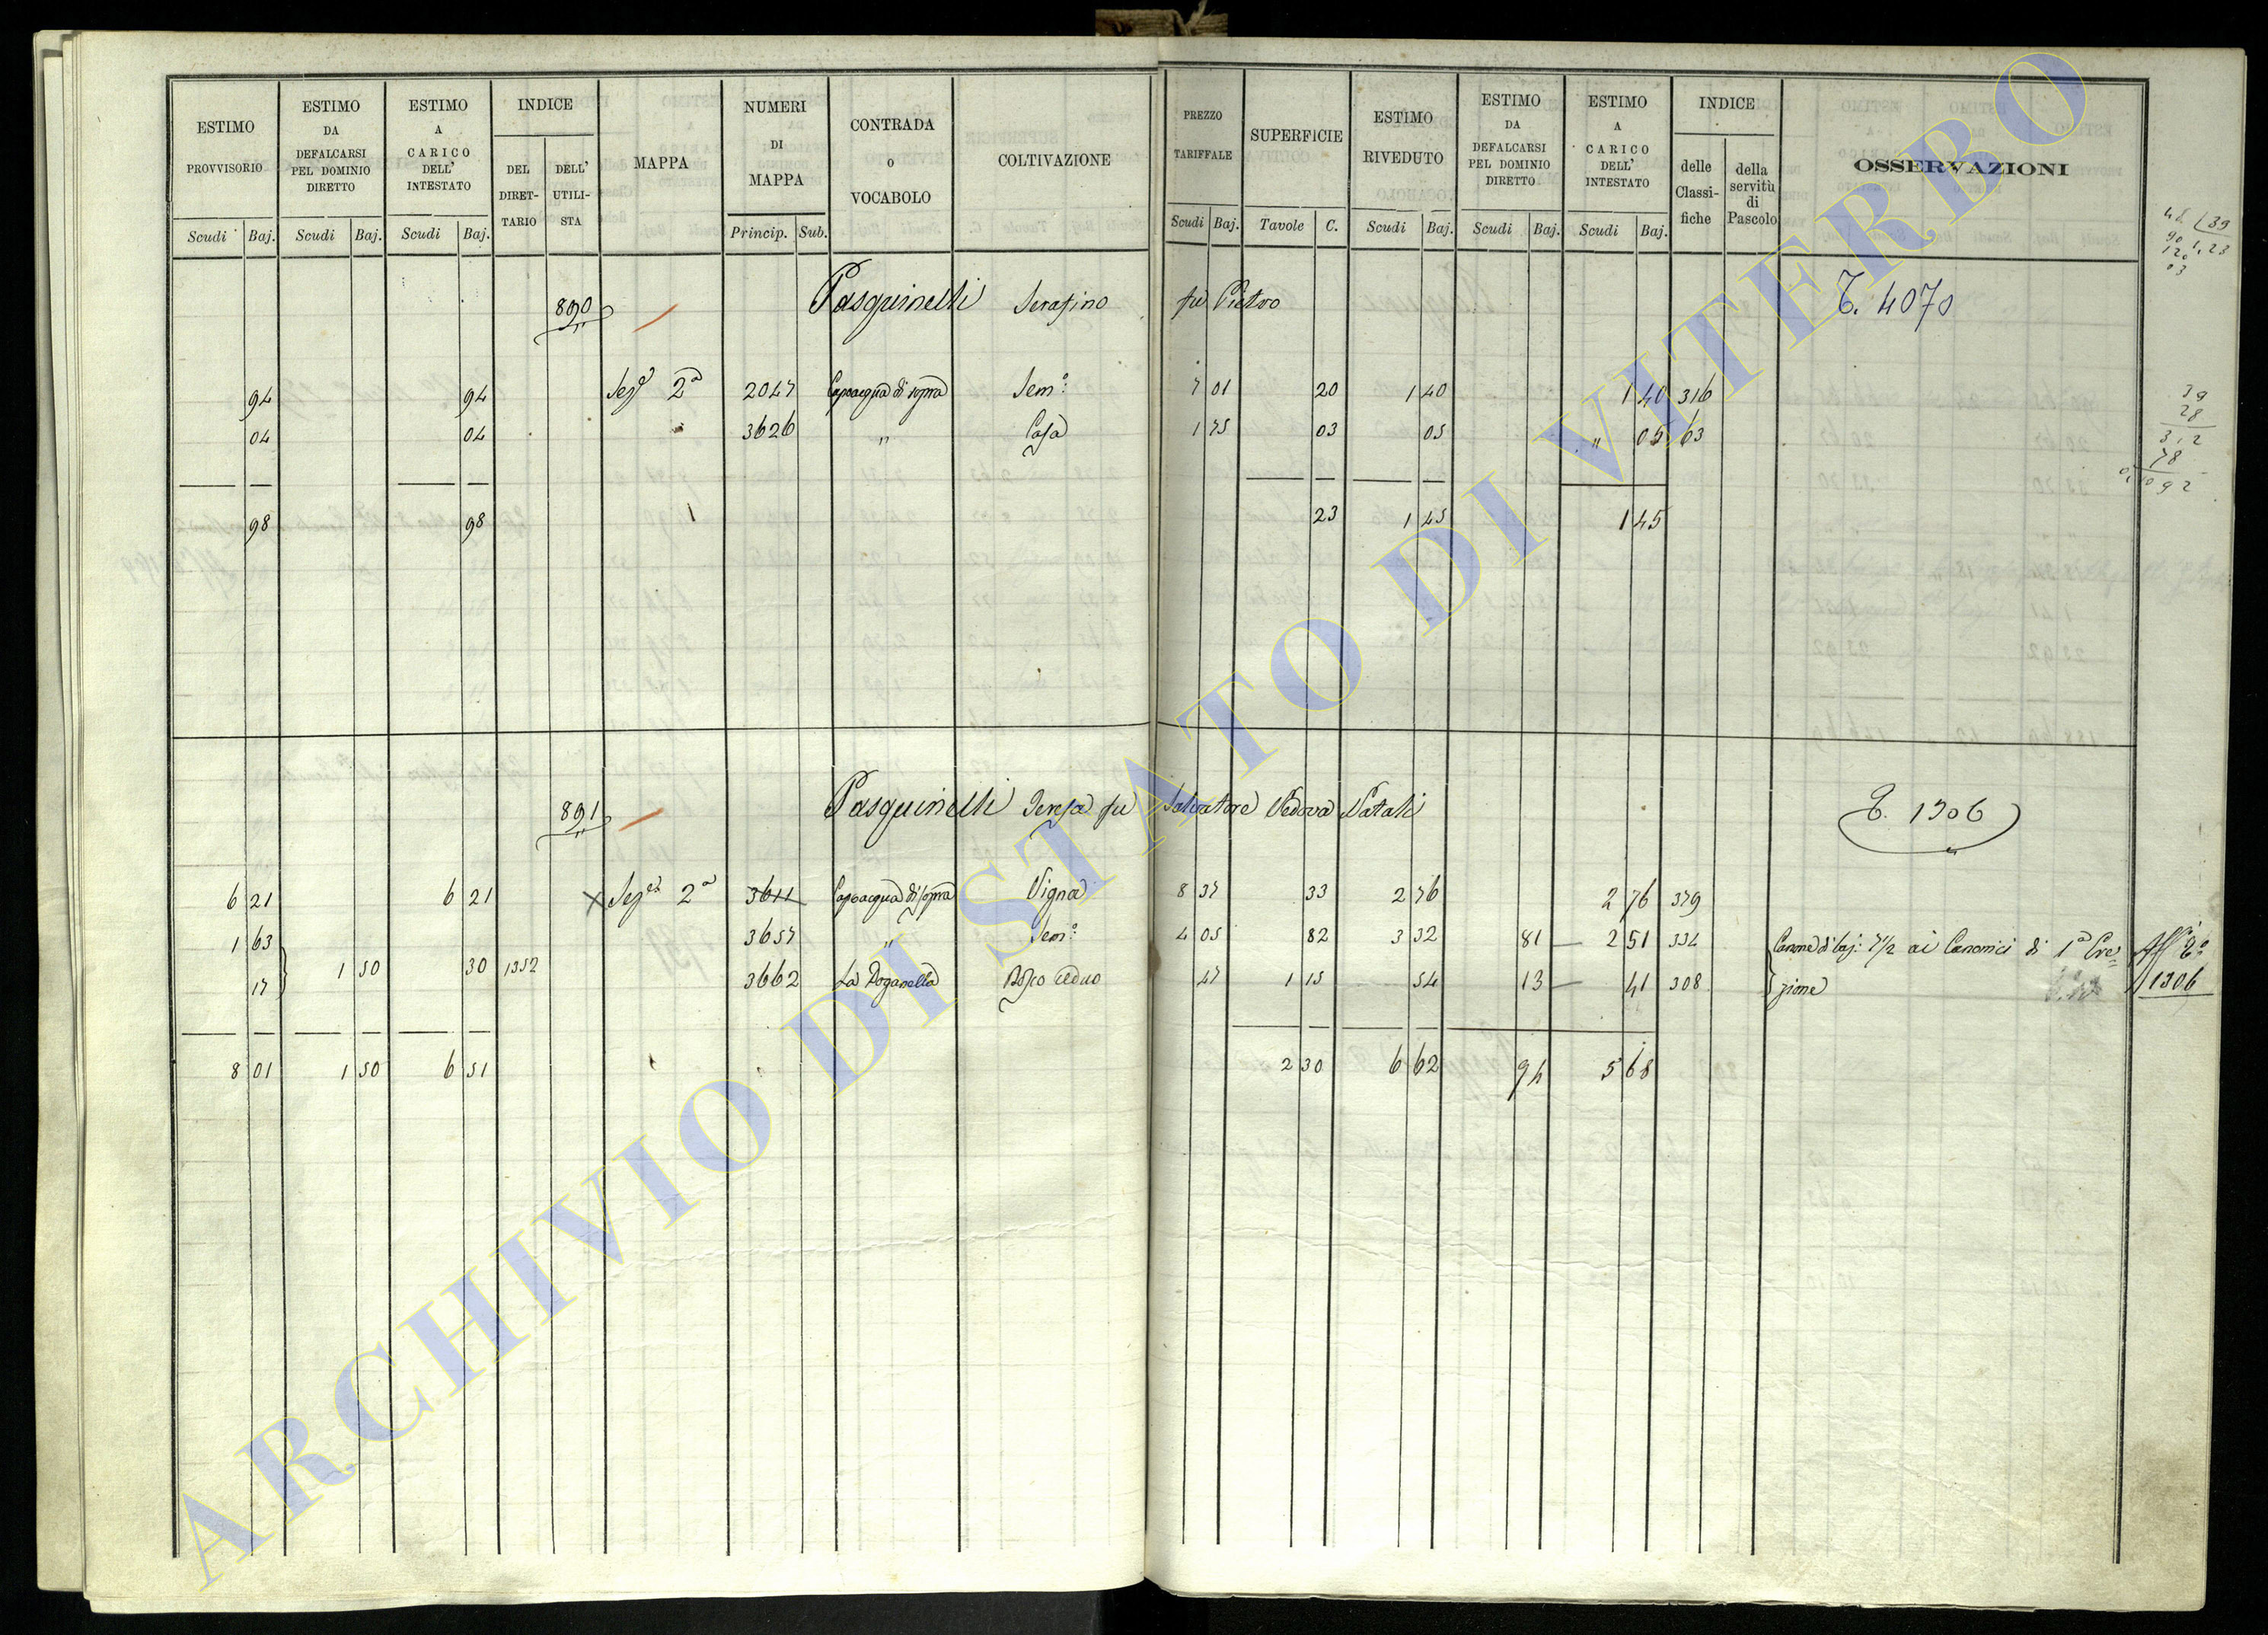 ESTIMO PROVVISORIO Scudi Baj.
ESTIMO DA DEFALCARSI PEL DOMINIO DIRETTO Scudi Baj.
ESTIMO A CARICO DELL' INTESTATO Scudi Baj.
INDICE DEL DIRET-TARIO DELL' UTILI-STA
MAPPA
NUMERI DI MAPPA Princip. Sub.
CONTRADA O VOCABOLO
COLTIVAZIONE
PREZZO TARIFFALE Scudi Baj.
SUPERFICIE Tavole C.
ESTIMO RIVEDUTO Scudi Baj.
ESTIMO DA DEFALCARSI PEL DOMINIO DIRETTO Scudi Baj.
ESTIMO A CARICO DELL' INTESTATO Scudi Baj.
INDICE delle Classi-fiche della servitù di Pascolo
OSSERVAZIONI
890 Pasquinelli Serafino fu Pietro T. 4070
94 94 Sez.e 2a 2047 Capoacqua di sopra Sem.o 7 01 20 1 40 1 40 316
04 04 3626 " Casa 1 75 03 05 " 05 63
98 98 23 1 45 1 45
891 Pasquinelli Teresa fu Salvatore Vedova Natali T. 1306
6 21 6 21 X Sez.e 2a 3611 Capoacqua di sopra Vigna 8 37 33 2 76 2 76 379
1 63 3657 " Sem.o 4 05 82 3 32 81 2 51 334 Canone di baj: 7 1/2 ai Canonici di 1a Ere=
17 1 50 30 1352 3662 La Doganella Bosco ceduo 47 1 15 54 13 41 308 zione
1306
8 01 1 50 6 51 2 30 6 62 94 5 68
39
28
312
78
ARCHIVIO DI STATO DI VITERBO